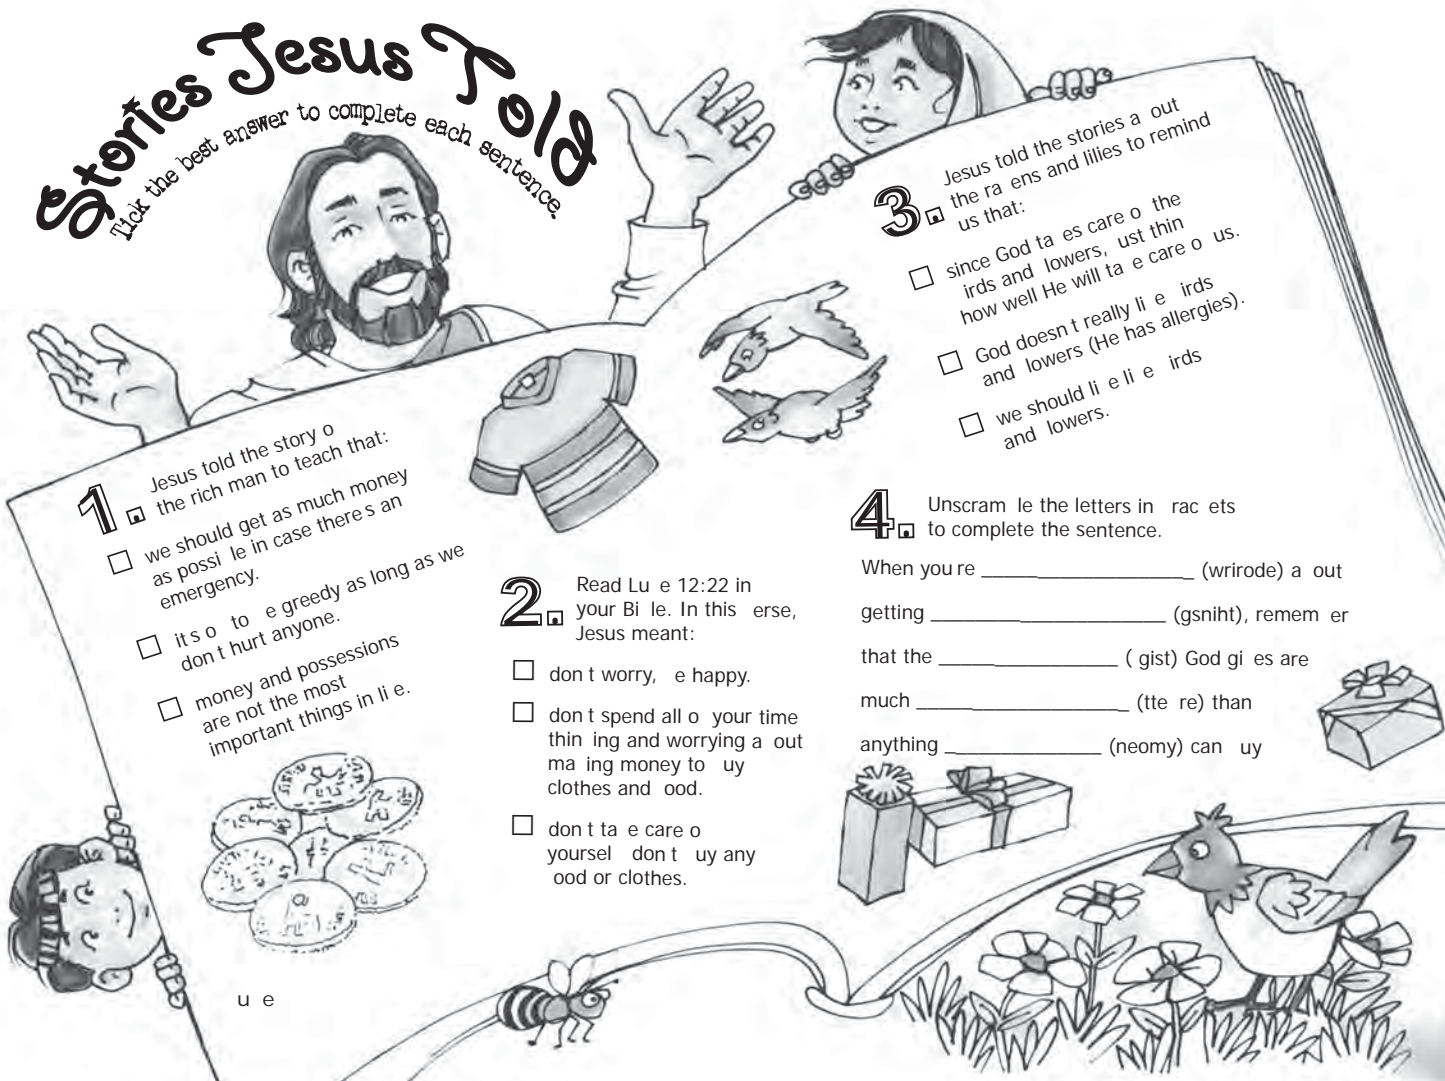 Stories Jesus Told
Tick the best answer to complete each sentence.
1. Jesus told the story o
the rich man to teach that:
we should get as much money
as possi le in case there s an
emergency.
it s o to e greedy as long as we
don t hurt anyone.
money and possessions
are not the most
important things in li e.
2. Read Lu e 12:22 in
your Bi le. In this erse,
Jesus meant:
don t worry, e happy.
don t spend all o your time
thin ing and worrying a out
ma ing money to uy
clothes and ood.
don t ta e care o
yoursel don t uy any
ood or clothes.
3. Jesus told the stories a out
the ra ens and lilies to remind
us that:
since God ta es care o the
irds and lowers, ust thin
how well He will ta e care o us.
God doesn t really li e irds
and lowers (He has allergies).
we should li e li e irds
and lowers.
4. Unscram le the letters in rac ets
to complete the sentence.
When you re ___________________ (wrirode) a out
getting _____________________ (gsniht), remem er
that the ________________ ( gist) God gi es are
much ___________________ (tte re) than
anything ______________ (neomy) can uy
u e